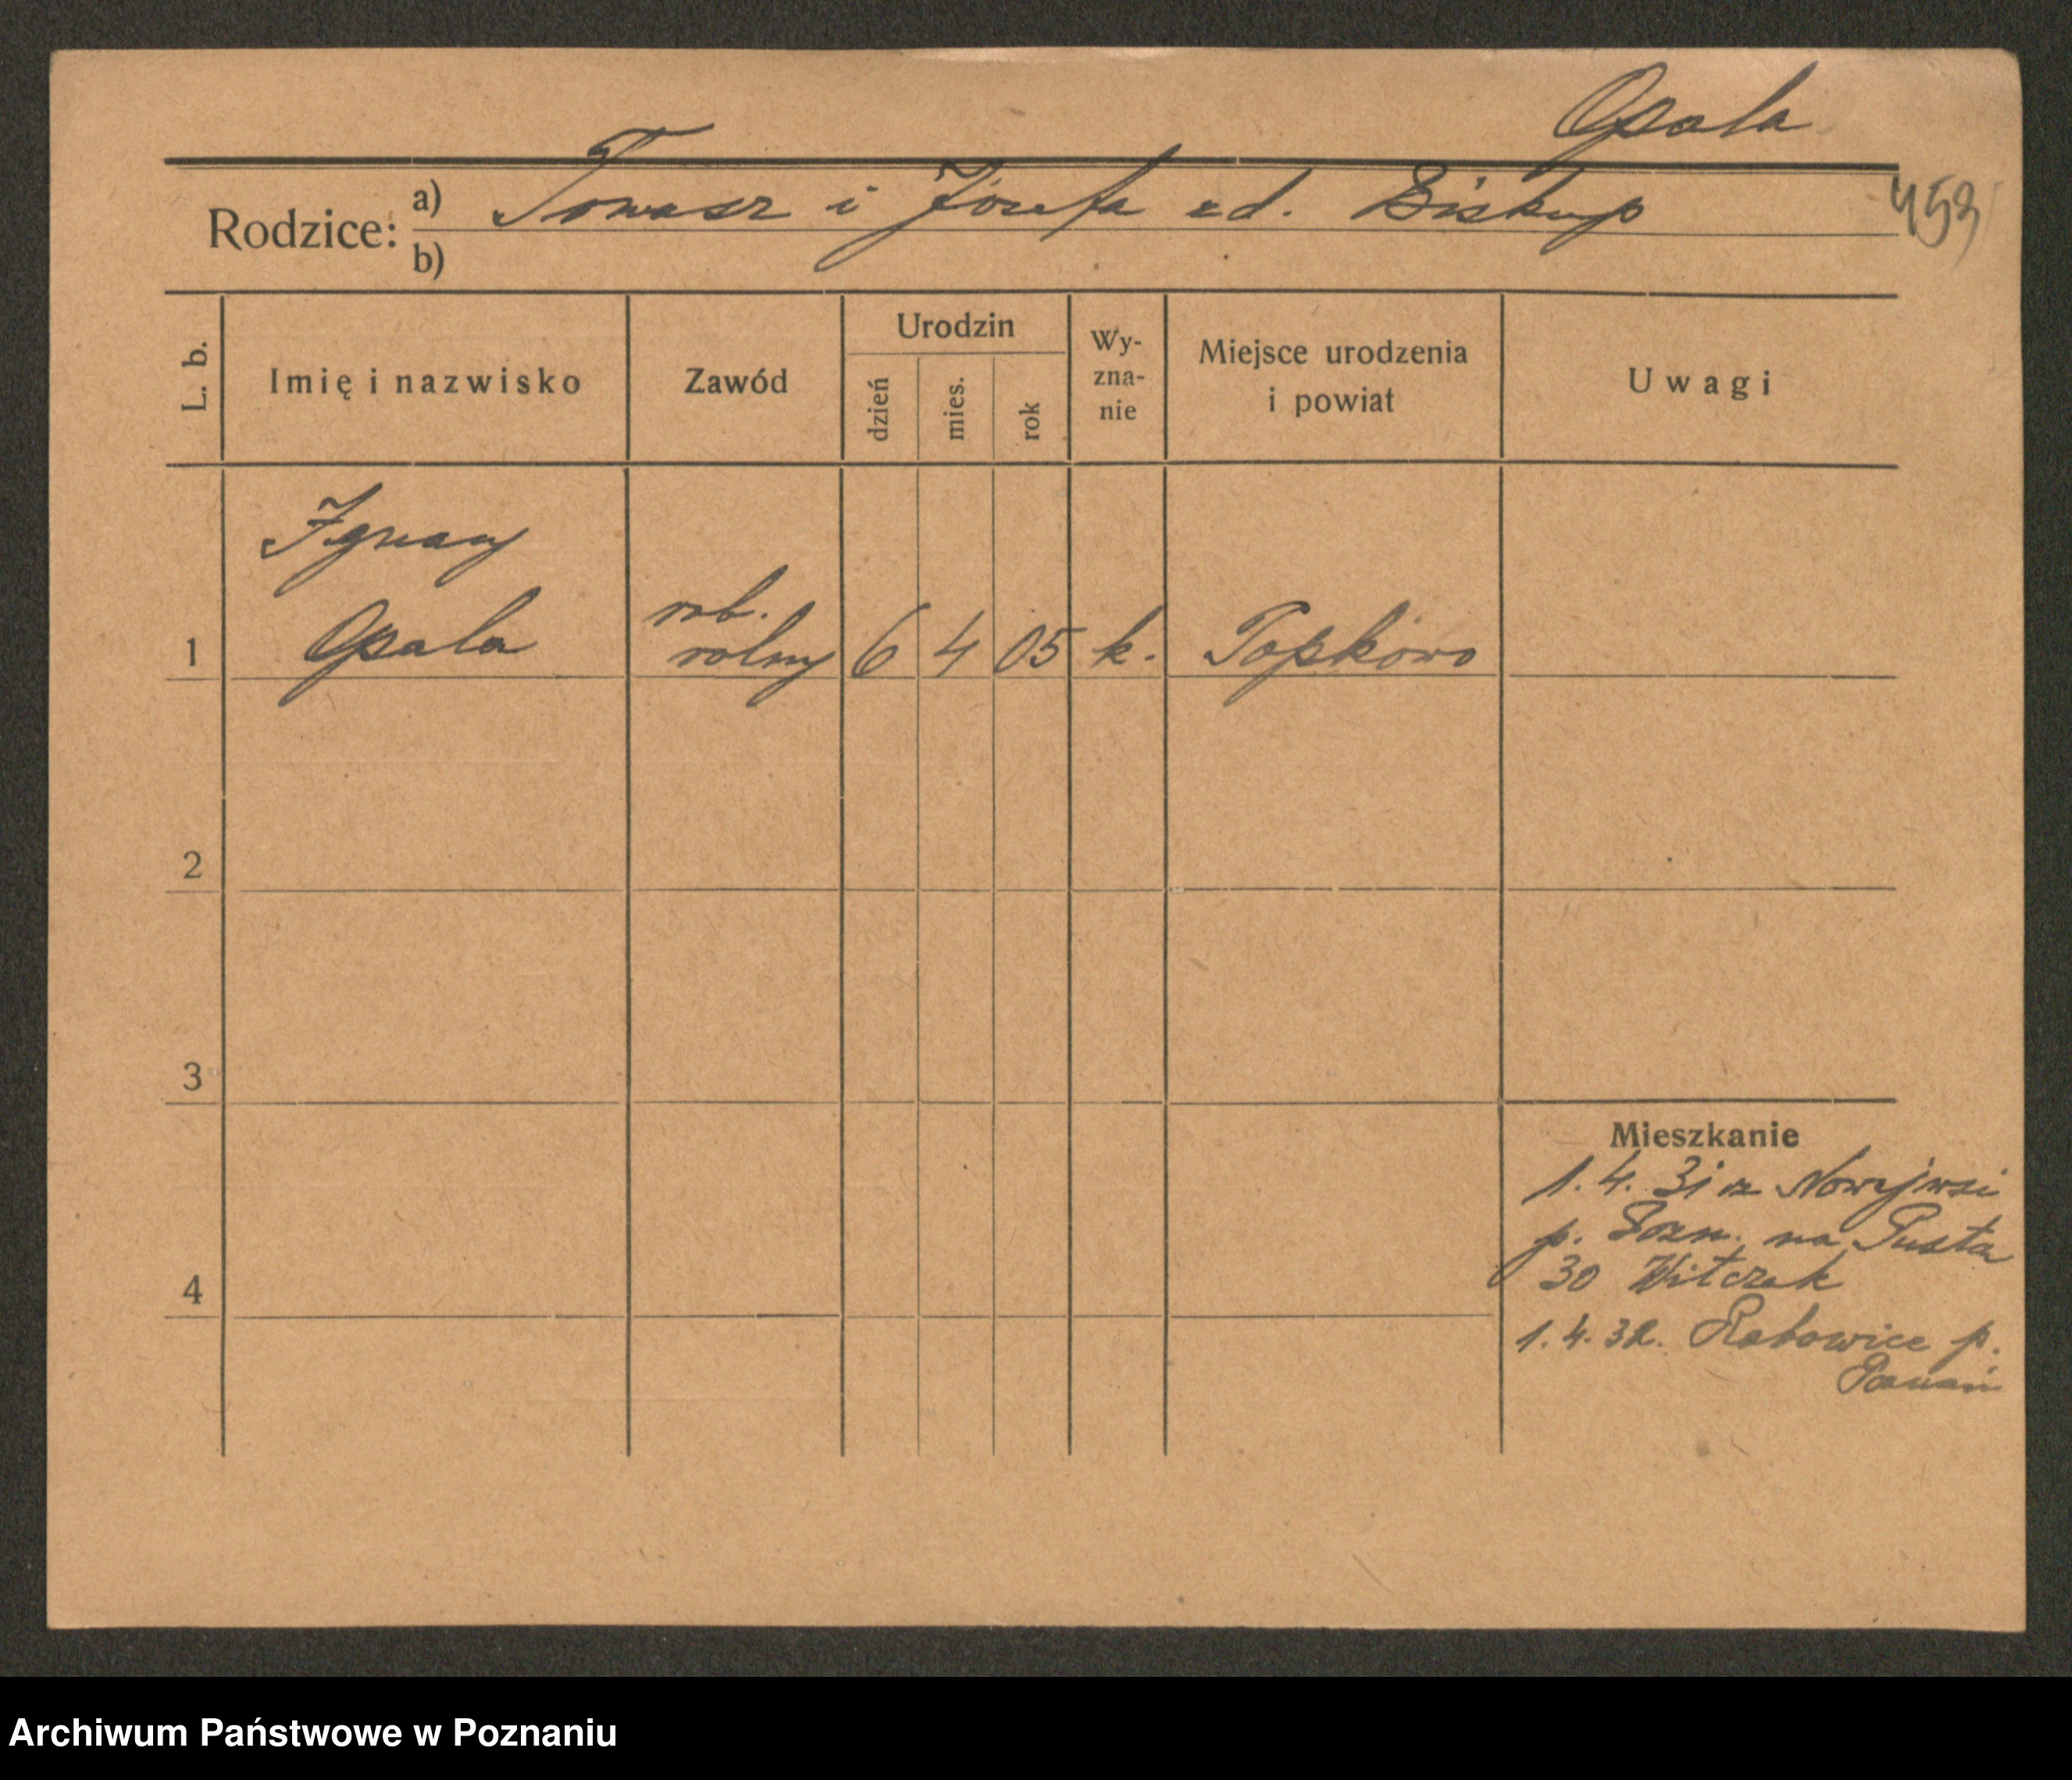 Opala
Rodzice: a) Tomasz i Józefa zd. Biskup
453
b)
L. b. Imię i nazwisko Zawód Urodzin dzień mies. rok Wy-zna-nie Miejsce urodzenia i powiat Uwagi
Ignacy
rob.
1 Opala rolny 6 4 05 k. Popkowo
2
3
Mieszkanie
1. 4. 31 z Nowejwsi
p. Pozn. na Pusta
4 30 Witczak
1. 4. 32. Rabowice p.
Poznań
Archiwum Państwowe w Poznaniu